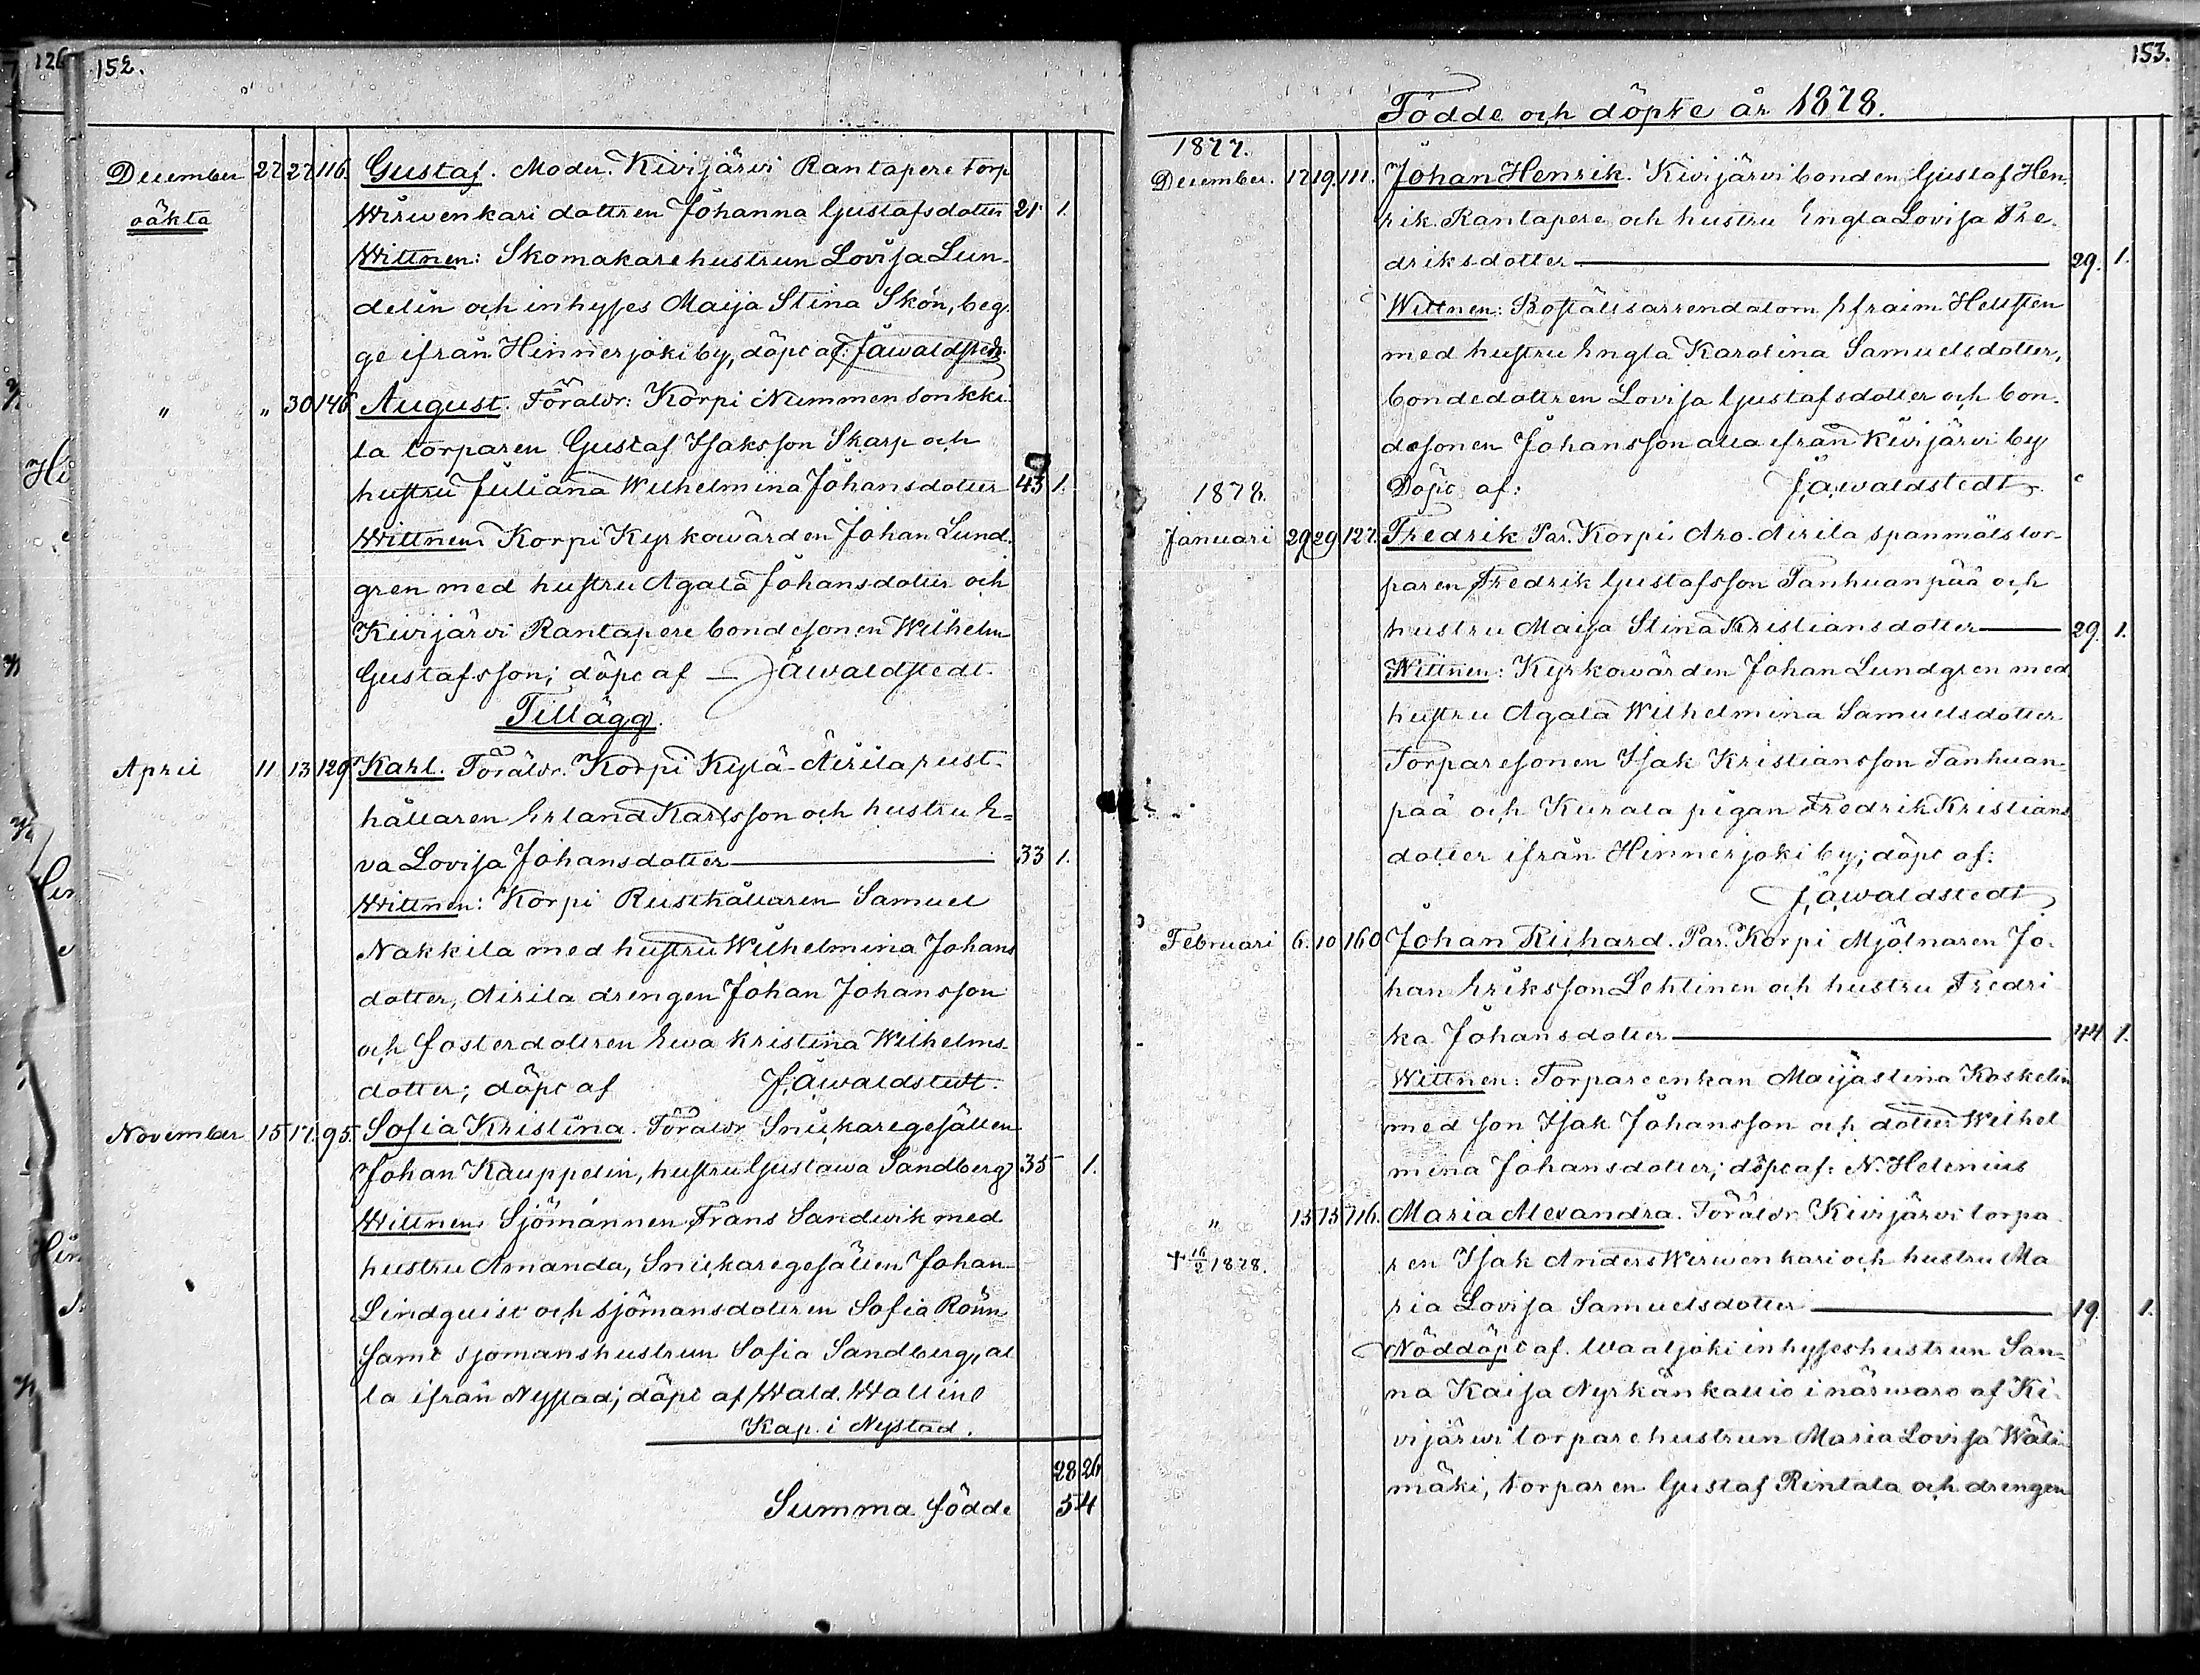 126
152.
December 27 27 116. Gustaf. Moder. Kivijärvi Rantapere torp
oäkta Wirwenkari dottren Johanna Gustafsdotter 21. 1.
Wittnen: Skomakarehustrun Lovisa Lun-
delin och inhyses Maija Stina Skön, beg-
ge ifrån Hinnerjoki by, döpt af: J. Awaldstedt.
" " 30 146 August. Föräldr: Korpi Nummensonkki-
la torparen Gustaf Isaksson Skarp och
hustru Juliana Wilhelmina Johansdotter 43 1.
Wittnen: Korpi Kyrkowärden Johan Lund-
gren med hustru Agata Johansdotter och
Kivijärvi Rantapere bondesonen Wilhelm
Gustafsson; döpt af — J. Awaldstedt.
Tillägg.
April 11 13 129 Karl. Föräldr. Korpi Kylä-Äirilä rust-
hållaren Erland Karlsson och hustru E=
va Lovisa Johansdotter 33 1.
Wittnen: Korpi Rusthållaren Samuel
Nakkila med hustru Wilhelmina Johans
dotter, Airila drengen Johan Johansson
och fosterdottren Ewa Kristina Wilhelms-
dotter; döpt af J. Awaldstedt.
November 15 17. 95. Sofia Kristina. Föräldr Snickaregesällen
Johan Kauppelin, hustru Gustawa Sandberg 35 1.
Wittnen: Sjömannen Frans Sandwik med
hustru Amanda, Snickaregesällen Johan
Lindquist och sjömansdottren Sofia Rönn
samt sjömanshustrun Sofia Sandberg, al-
la ifrån Nystad; döpt af Wald. Wallin
Kap. i Nystad.
28 26
Summa födde 54
153.
Födde och döpte år 1878.
1877.
December. 17 19. 111. Johan Henrik. Kivijärvi bonden Gustaf Hen-
rik Rantapere och hustru Engla Lovisa Fre-
driksdotter 29. 1.
Wittnen: Boställsarrendatorn Efraim Hellsten
med hustru Engla Karolina Samuelsdotter,
bondedottren Lovisa Gustafsdotter och bon-
desonen Johansson alla ifrån Kivijärvi by
1878. Döpt af: J. Awaldstedt
Januari 29 29 127. Fredrik Par. Korpi Aro-Airila spanmålstor-
paren Fredrik Gustafsson Tanhuanpää och
hustru Maija Stina Kristiansdotter 29. 1.
Wittnen: Kyrkowärden Johan Lundgren med
hustru Agata Wilhelmina Samuelsdotter
Torparesonen Isak Kristiansson Tanhuan-
pää och Kurala pigan Fredrik Kristians
dotter ifrån Hinnerjoki by; döpt af:
J. Awaldstedt
Februari 6. 10 160 Johan Richard. Par. Korpi Mjölnaren Jo-
han Eriksson Lehtinen och hustru Fredri
ka Johansdotter 44 1.
Wittnen: Torpareenkan Maijastina Koskelin
med son Isak Johansson och dotter Wilhel
mina Johansdotter; döpt af: N. Helenius
" 15 15 116. Maria Alexandra. Föräldr Kivijärvi torpa
† 16/2 1878. ren Isak Anders Wirwenkari och hustru Ma
ria Lovisa Samuelsdotter 19. 1.
Nöddöpt af. Waaljoki inhyseshustrun San-
na Kaisa Nyrkänkallio i närwaro af Ki-
vijärvi torparehustrun Maria Lovisa Wäli-
mäki, torparen Gustaf Rintala och drengen